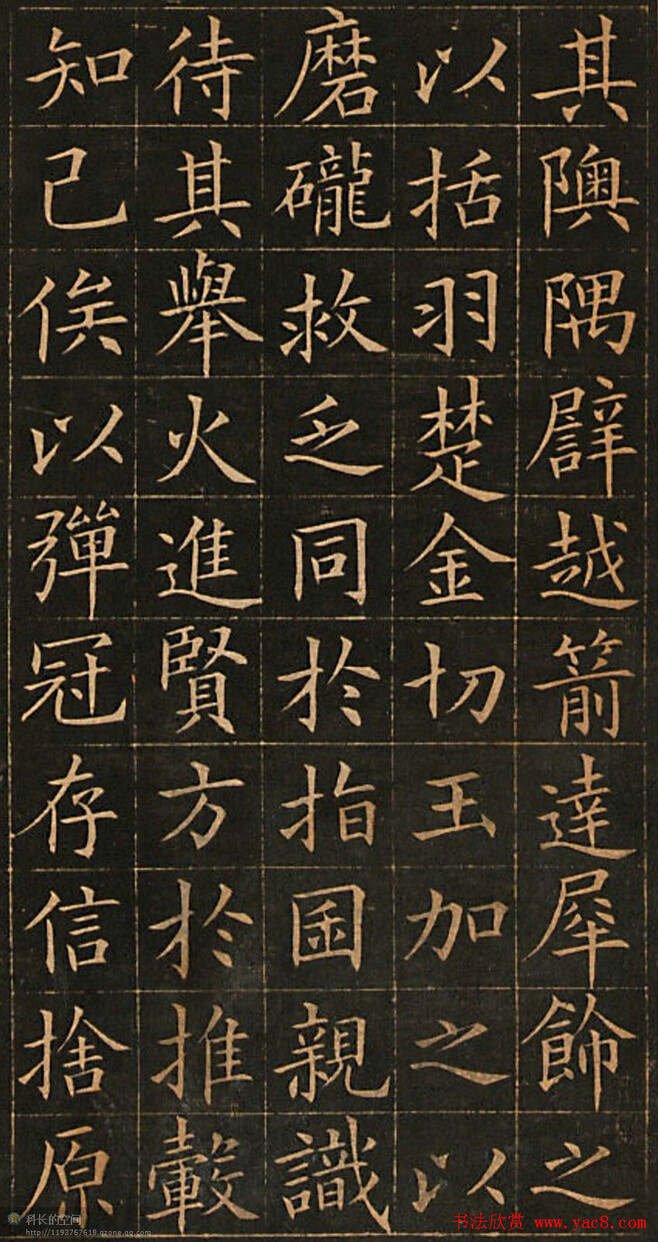 其隩隅譬越箭達犀飾之
以括羽楚金切玉加之以
磨礲救乏同於指囷親識
待其舉火進賢方於推轂
知己俟以彈冠存信捨原
科长的空间
http://1193767618.qzone.qq.com
书法欣赏 www.yac8.com